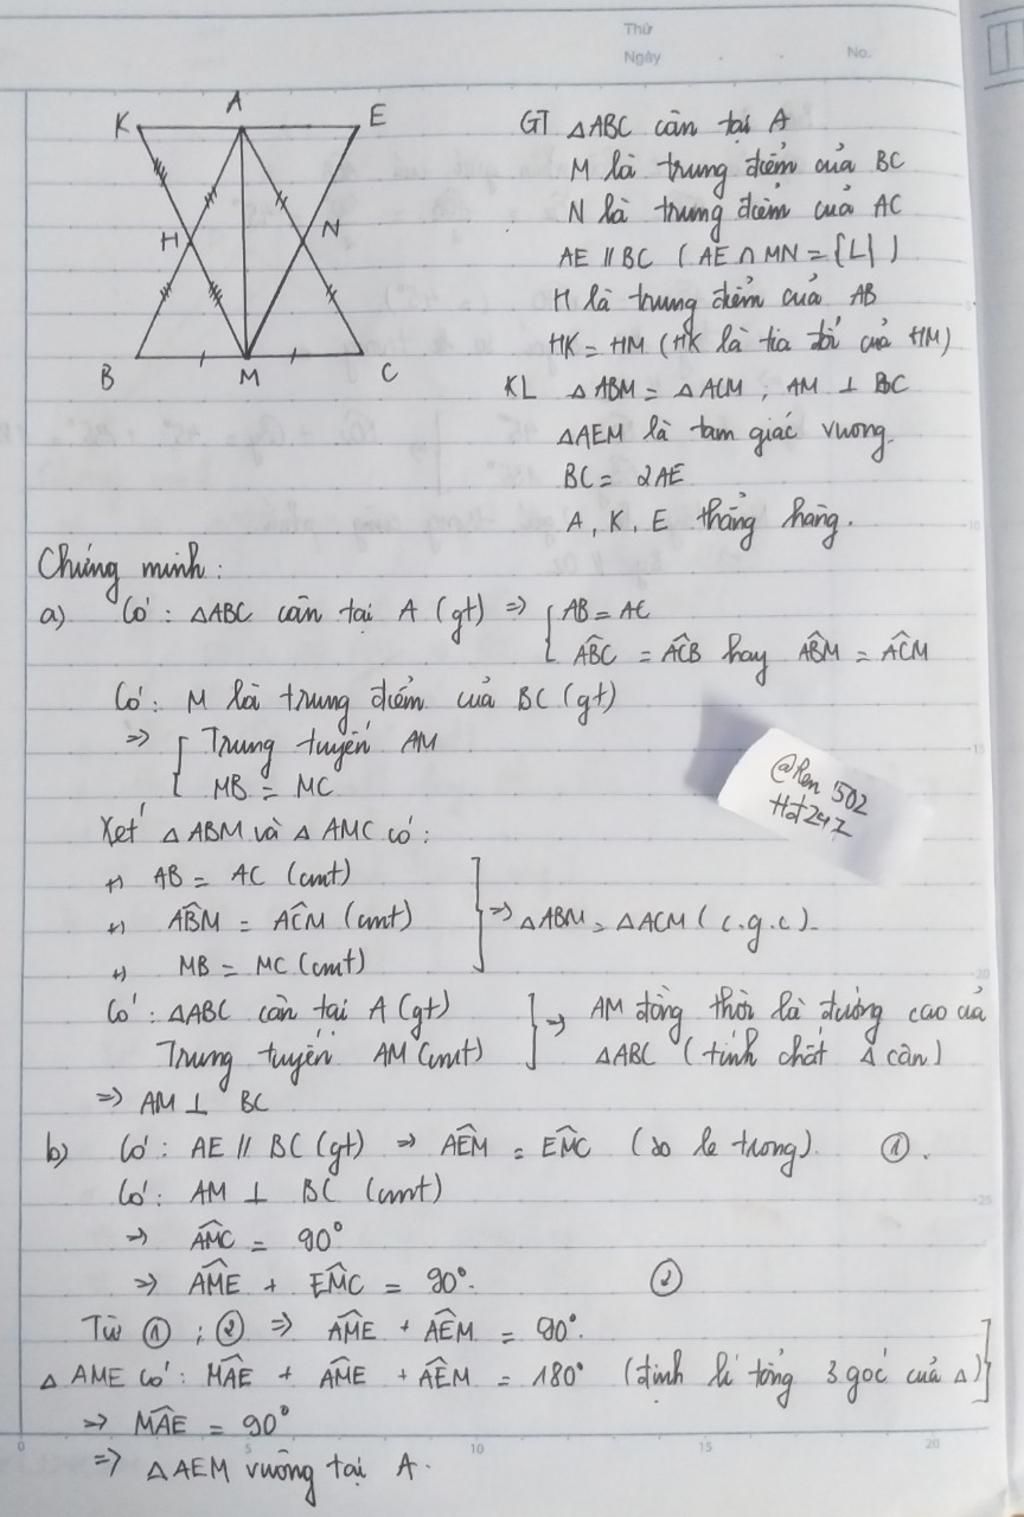 Thứ
Ngày
No.
K A E
H N
B M C
GT △ABC cân tại A
M là trung điểm của BC
N là trung điểm của AC
AE // BC ( AE ∩ MN = {L} )
H là trung điểm của AB
HK = HM (HK là tia đối của HM)
KL △ABM = △ACM ; AM ⊥ BC
△AEM là tam giác vuong.
BC = 2AE
A, K, E thẳng hàng.
Chứng minh:
a) Có: △ABC cân tại A (gt) => { AB = AC
ABC = ACB hay ABM = ACM
Có: M là trung điểm của BC (gt)
=> { Trung tuyến AM
MB = MC
Xét △ABM và △AMC có:
+) AB = AC (cmt)
+) ABM = ACM (cmt) } => △ABM = △ACM (c.g.c).
+) MB = MC (cmt)
Có: △ABC cân tại A (gt) } => AM đồng thời là đường cao của
Trung tuyến AM (cmt) △ABC (tính chất △ cân)
=> AM ⊥ BC
b) Có: AE // BC (gt) => AEM = EMC (so le trong). ①.
Có: AM ⊥ BC (cmt)
=> AMC = 90°
=> AME + EMC = 90°. ②
Từ ① ; ② => AME + AEM = 90°.
△AME có: MAE + AME + AEM = 180° (định lí tổng 3 góc của △) }
=> MAE = 90°
=> △AEM vuông tại A.
@Ren 1502
Hot247
5
10
15
20
25
0 5 10 15 20